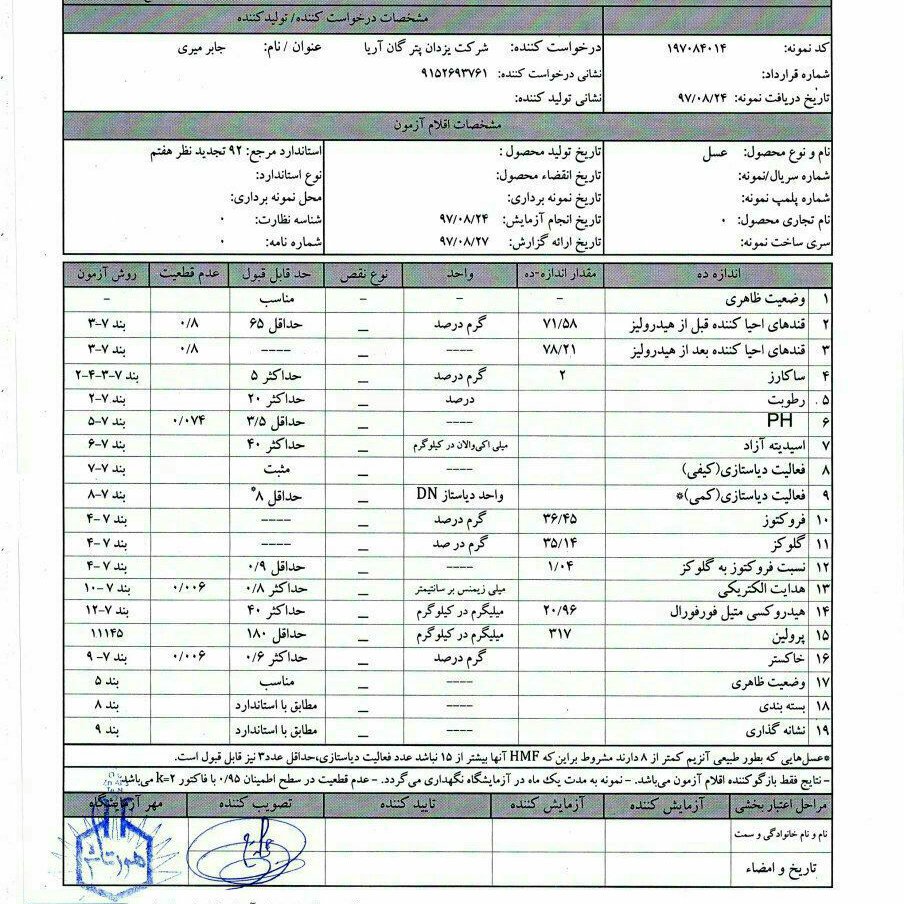 مشخصات درخواست کننده/ تولیدکننده
کد نمونه: ۱۹۷۰۸۴۰۱۴ درخواست کننده: شرکت یزدان پتر گان آریا عنوان /نام: جابر میری
شماره قرارداد: نشانی درخواست کننده: ۹۱۵۲۶۹۳۷۶۱
تاریخ دریافت نمونه: ۹۷/۰۸/۲۴ نشانی تولید کننده:
مشخصات اقلام آزمون
نام و نوع محصول: عسل تاریخ تولید محصول : استاندارد مرجع: ۹۲ تجدید نظر هفتم
شماره سریال/نمونه: تاریخ انقضاء محصول: نوع استاندارد:
شماره پلمپ نمونه: تاریخ نمونه برداری: محل نمونه برداری:
نام تجاری محصول: ۰ تاریخ انجام آزمایش: ۹۷/۰۸/۲۴ شناسه نظارت: ۰
سری ساخت نمونه: تاریخ ارائه گزارش: ۹۷/۰۸/۲۷ شماره نامه: ۰
اندازه ده مقدار اندازه-ده واحد نوع نقص حد قابل قبول عدم قطعیت روش آزمون
۱ وضعیت ظاهری – – – مناسب –
۲ قندهای احیا کننده قبل از هیدرولیز ۷۱/۵۸ گرم درصد _ حداقل ۶۵ ۰/۸ بند ۷-۳
۳ قندهای احیا کننده بعد از هیدرولیز ۷۸/۲۱ ---- _ ---- ۰/۸ بند ۷-۳
۴ ساکارز ۲ گرم درصد _ حداکثر ۵ بند ۷-۳-۴-۲
۵. رطوبت درصد _ حداکثر ۲۰ بند ۷-۲
۶ PH ---- _ حداقل ۳/۵ ۰/۰۷۴ بند ۷-۵
۷ اسیدیته آزاد میلی اکی‌والان در کیلوگرم _ حداکثر ۴۰ بند ۷-۶
۸ فعالیت دیاستازی(کیفی) ---- _ مثبت بند ۷-۷
۹ فعالیت دیاستازی(کمی)* واحد دیاستاز DN _ حداقل ۸* بند ۷-۸
۱۰ فروکتوز ۳۶/۴۵ گرم درصد _ ---- بند ۷-۴
۱۱ گلوکز ۳۵/۱۴ گرم در صد _ ---- بند ۷-۴
۱۲ نسبت فروکتوز به گلوکز ۱/۰۴ ---- _ حداقل ۰/۹ بند ۷-۴
۱۳ هدایت الکتریکی میلی زیمنس بر سانتیمتر _ حداکثر ۰/۸ ۰/۰۰۶ بند ۷-۱۰
۱۴ هیدروکسی متیل فورفورال ۲۰/۹۶ میلیگرم در کیلوگرم _ حداکثر ۴۰ بند ۷-۱۲
۱۵ پرولین ۳۱۷ میلیگرم در کیلوگرم _ حداقل ۱۸۰ ۱۱۱۴۵
۱۶ خاکستر گرم درصد _ حداکثر ۰/۶ ۰/۰۰۶ بند ۷-۹
۱۷ وضعیت ظاهری ---- _ مناسب بند ۵
۱۸ بسته بندی ---- _ مطابق با استاندارد بند ۸
۱۹ نشانه گذاری ---- _ مطابق با استاندارد بند ۹
*عسل‌هایی که بطور طبیعی آنزیم کمتر از ۸ دارند مشروط براین که HMF آنها بیشتر از ۱۵ نباشد عدد فعالیت دیاستازی،حداقل عدد۳ نیز قابل قبول است.
- نتایج فقط بازگو کننده اقلام آزمون می‌باشد. - نمونه به مدت یک ماه در آزمایشگاه نگهداری می‌گردد. - عدم قطعیت در سطح اطمینان ۰/۹۵ با فاکتور k=۲ می‌باشد.
مراحل اعتبار بخشی آزمایش کننده آزمایش کننده تایید کننده تصویب کننده مهر آزمایشگاه
نام و نام خانوادگی و سمت
تاریخ و امضاء
هورتاش